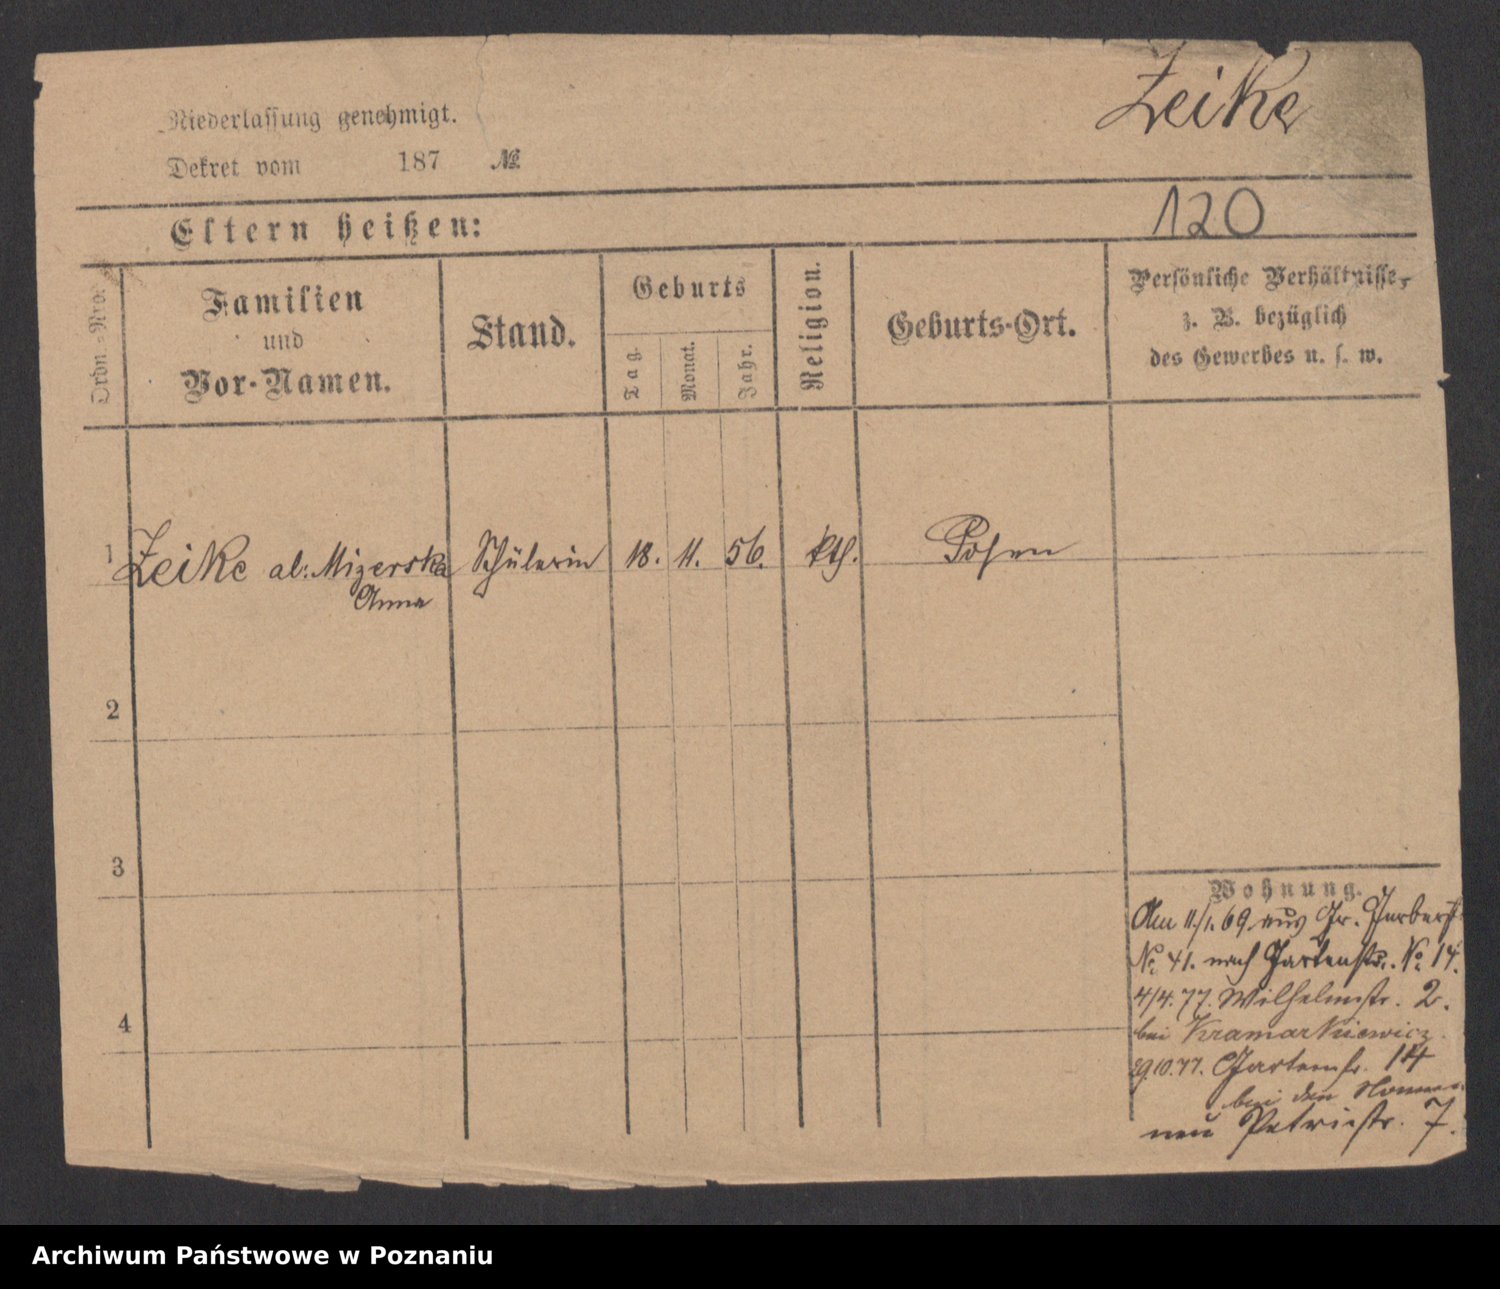 Zeike
Niederlassung genehmigt.
Dekret vom 187 №
120
Eltern heißen:
Ordn.-Nro.
Familien
und
Vor-Namen.
Stand.
Geburts
Tag.
Monat.
Jahr.
Religion.
Geburts-Ort.
Persönliche Verhältnisse,
z. B. bezüglich
des Gewerbes u. s. w.
1 Zeike al: Mizerska Schülerin 18. 11. 56. kth. Posen
Anna
2
3
4
Wohnung.
Am 11./1. 69 aus Gr. Gerberst
No. 41. nach Gartenstr. No. 14.
4/4. 77. Wilhelmstr. 2.
bei Kramarkiewicz
29.10.77. Gartenstr. 14
bei den Nonnen
neu Petristr. 7.